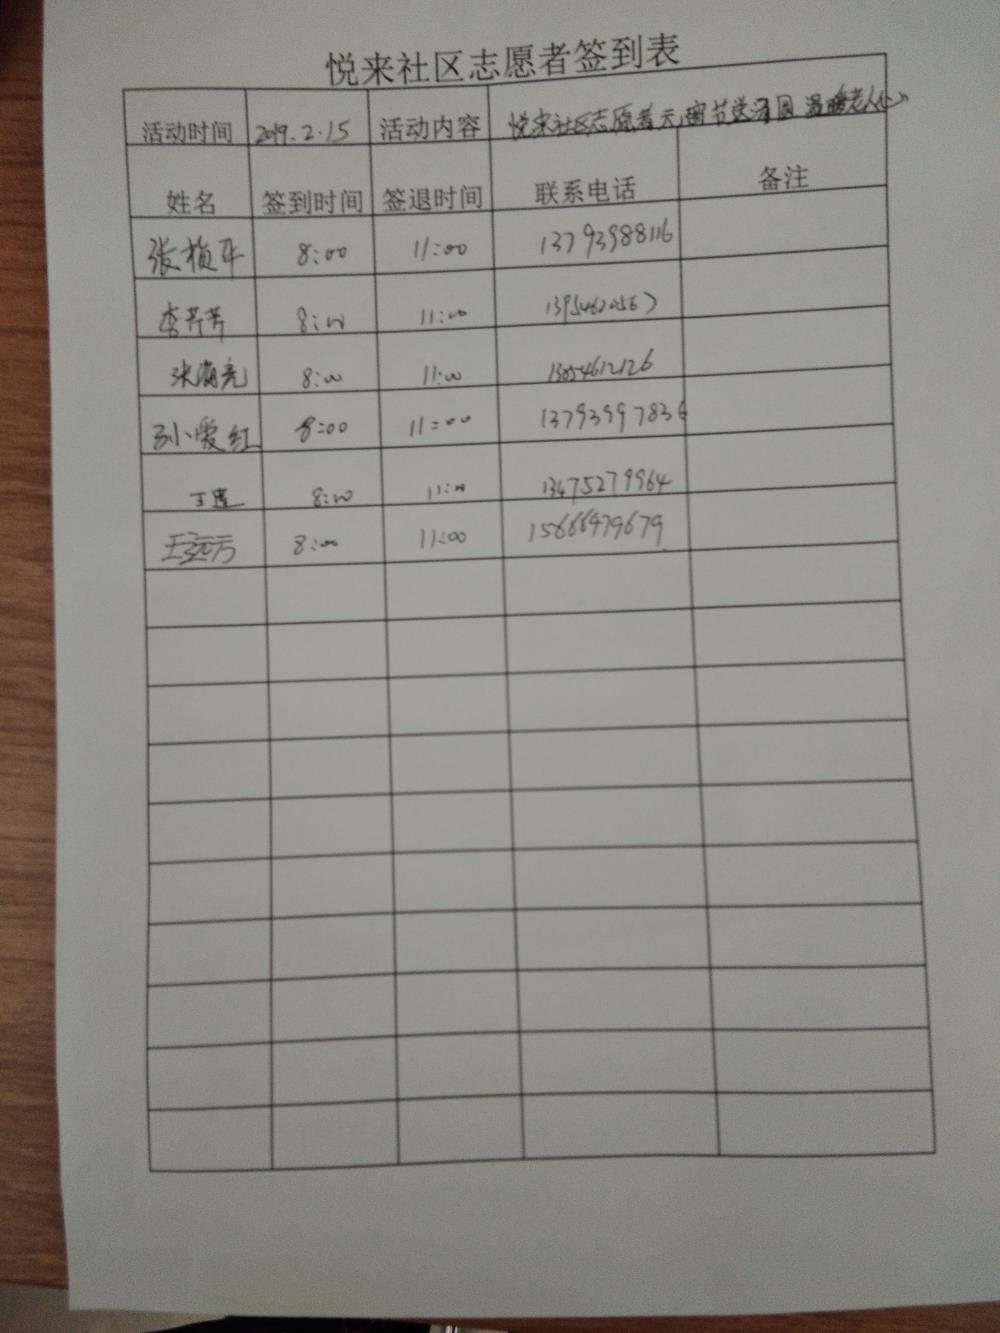 悦来社区志愿者签到表
活动时间 2019.2.15 活动内容 悦来社区志愿者元宵节送汤圆 温暖老人心
姓名 签到时间 签退时间 联系电话 备注
张桢平 8:00 11:00 13793988116
李芹芳 8:00 11:00
张海亮 8:00 11:00 13054612126
孙爱红 8:00 11:00 13793997836
王莲 8:00 11:00 13475279964
王远方 8:00 11:00 15666979679